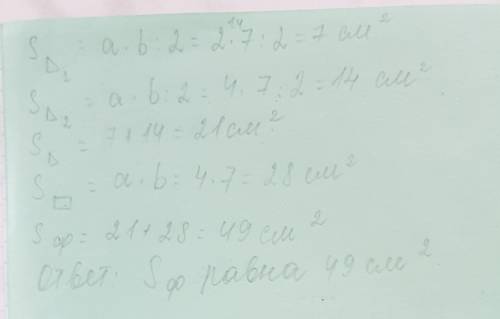 S△₁ = a · b : 2 = 2 · 7 : 2 = 7 см²
14
S△₂ = a · b : 2 = 4 · 7 : 2 = 14 см²
S△ = 7 + 14 = 21 см²
S▭ = a · b = 4 · 7 = 28 см²
Sф = 21 + 28 = 49 см²
Ответ: Sф равна 49 см²